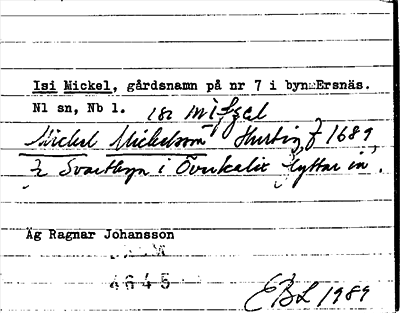 Isi Mickel, gårdsnamn på nr 7 i byn Ersnäs.
Nl sn, Nb l.
Mickel Mickelsson Hurtig f 1689
Svartbyn i Överkalix flyttar in.
Äg Ragnar Johansson
4645
EBL 1989